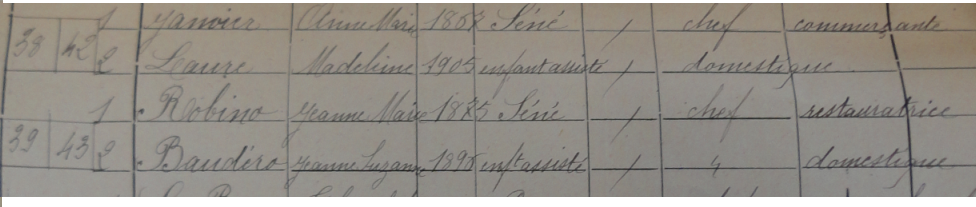 1 Janvier Anne Marie 1868 Séné / chef commerçante
38 42 2 Laure Madeleine 1905 enfant assisté / domestique
1 Robino Jeanne Marie 1875 Séné / chef restauratrice
39 43 2 Baudéro Jeanne Suzanne inft assisté / 4 domestique